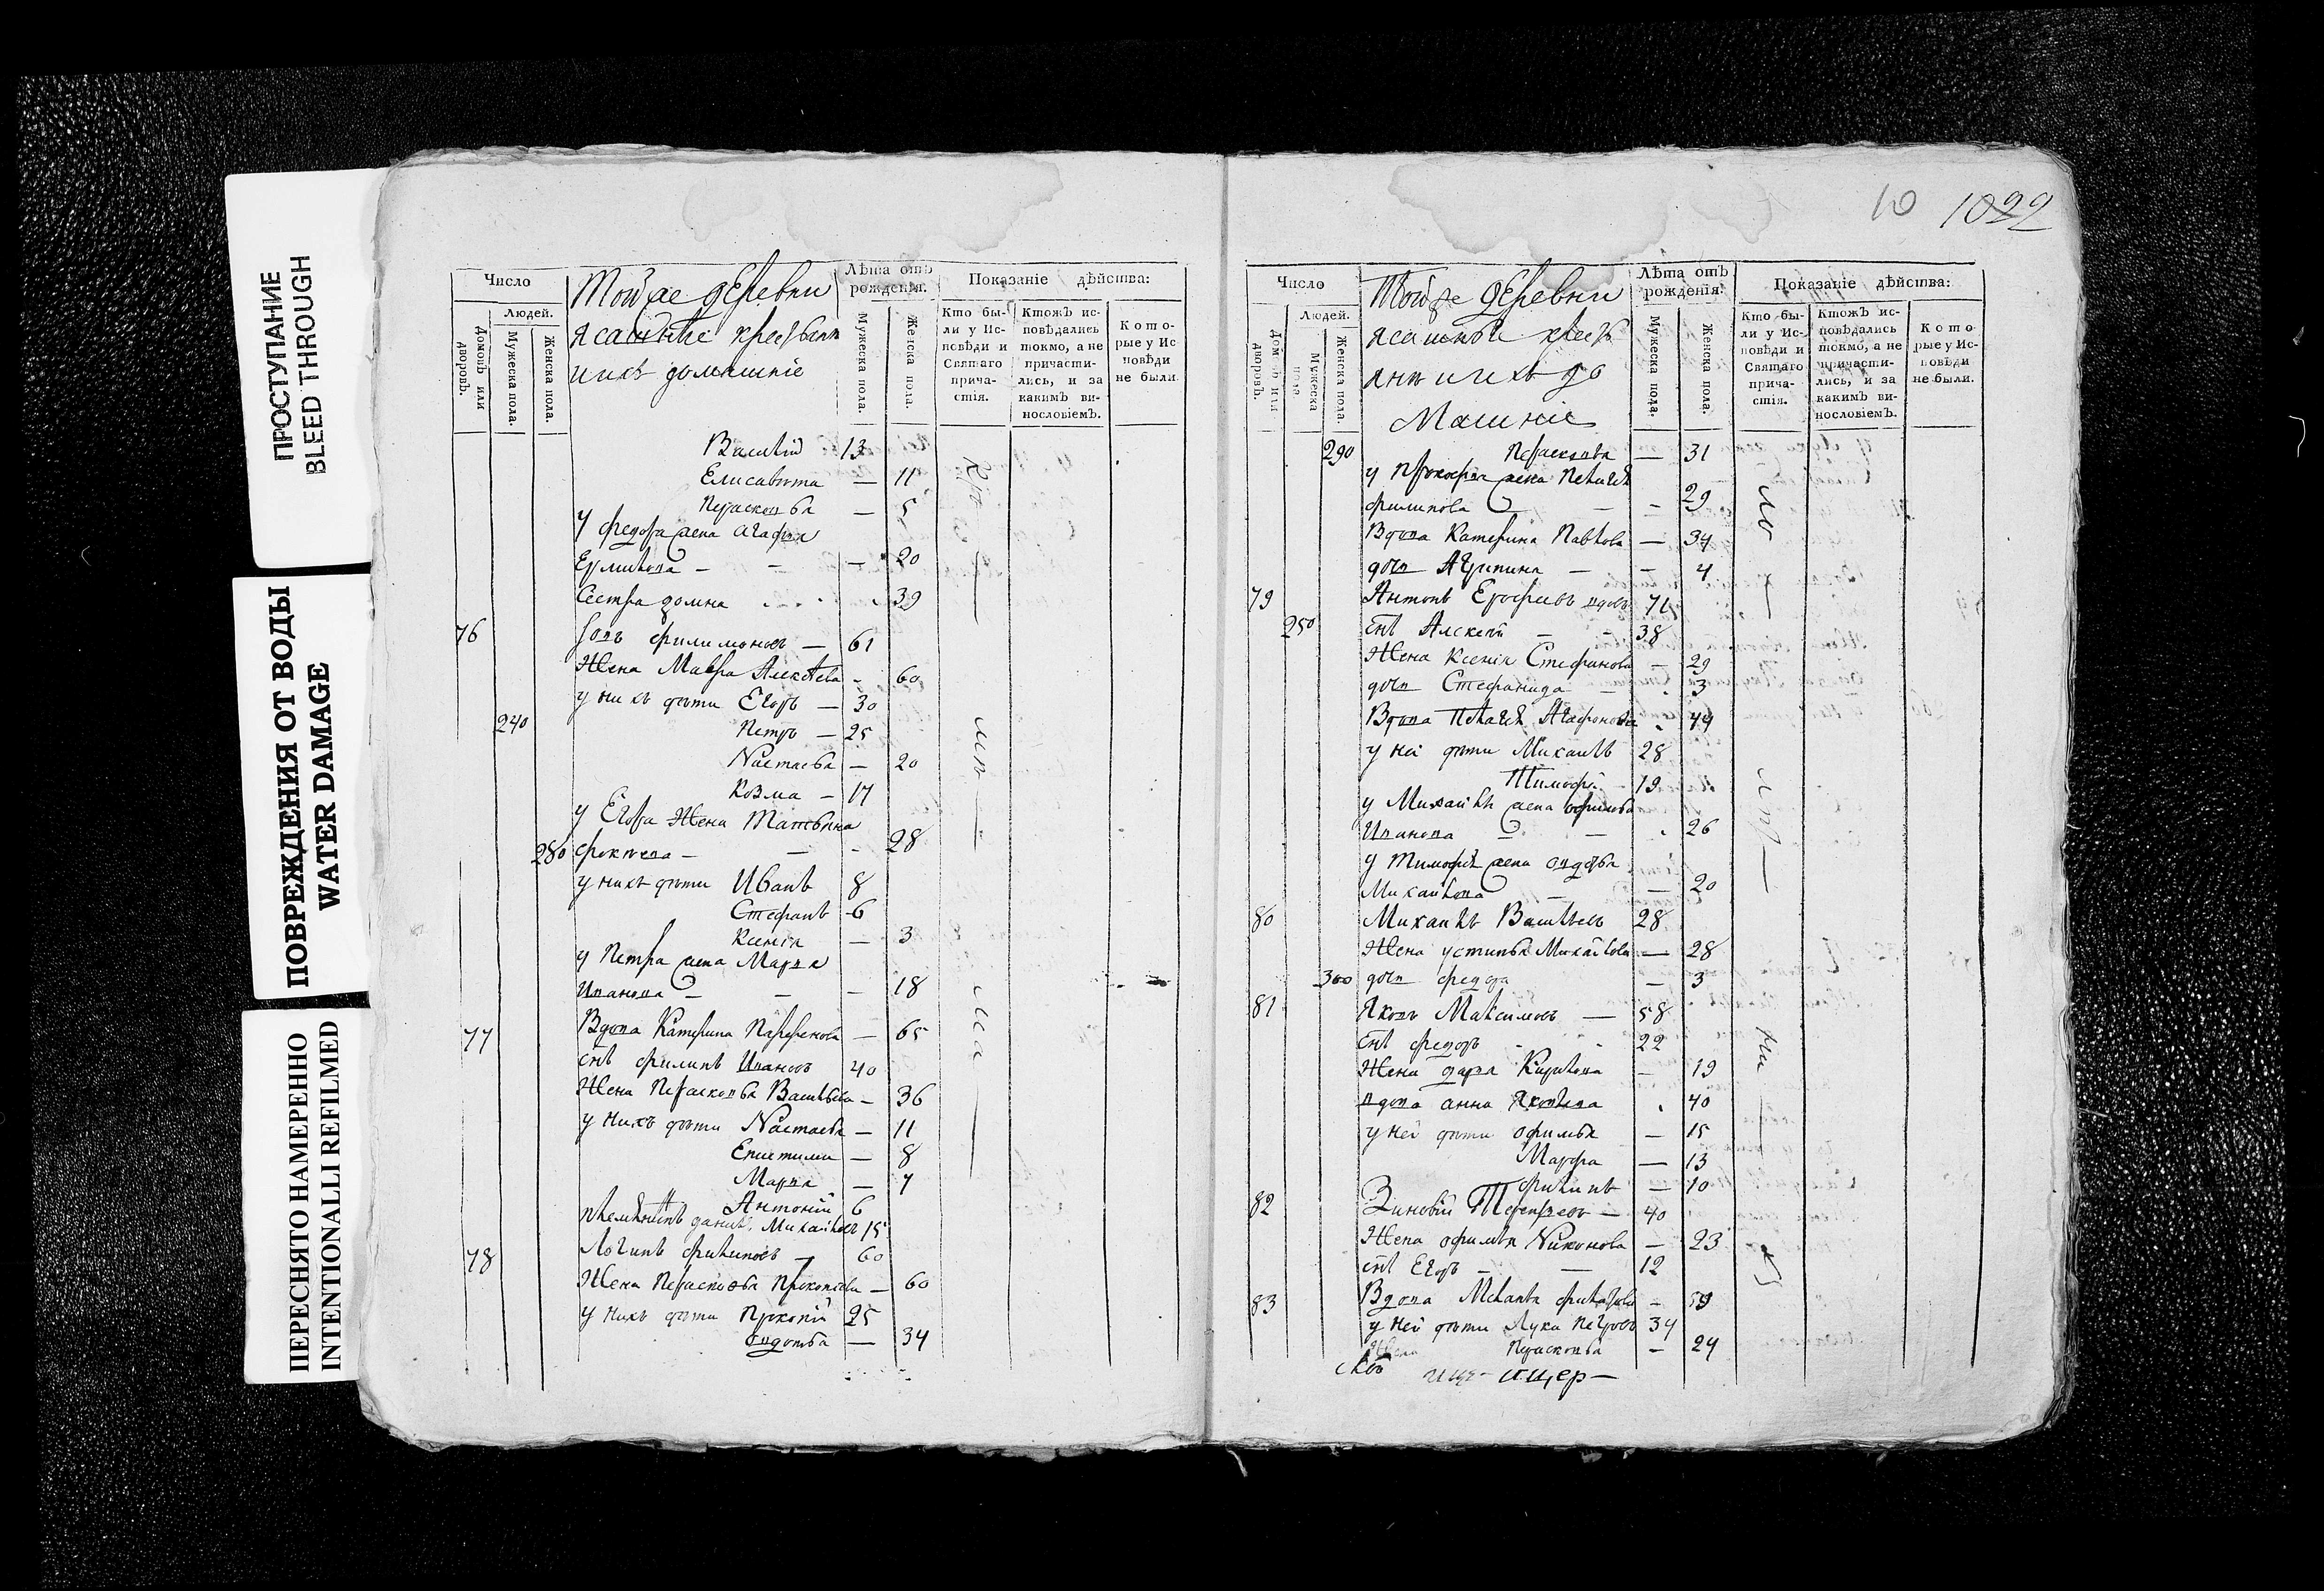 ПРОСТУПАНИЕ
BLEED THROUGH
ПОВРЕЖДЕНИЯ ОТ ВОДЫ
WATER DAMAGE
ПЕРЕСНЯТО НАМЕРЕННО
INTENTIONALLI REFILMED
Число
Людей.
Домовъ или дворовъ.
Мужеска пола.
Женска пола.
Тойже деревни
ясашные крестьяня
ихъ домашніе
Лѣта отъ рожденія.
Мужеска пола.
Женска пола.
Показаніе дѣйства:
Кто были у Исповѣди и Святаго причастія.
Ктожъ исповѣдались токмо, а не причастились, и за какимъ винословіемъ.
Которые у Исповѣди не были.
Василій 13
Елисавета — 11
Перасковья — 5
у Федора жена Агафия
Ермилова — — — 20
Сестра домна 39
76 филимоновъ — 61
Жена Мавра Алексѣева — 60
у нихъ дѣти Егоръ — 30
240 Петръ — 25
Настасья — 20
Козма — 17
у Егора Жена Татьяна
280 — — 28
у нихъ дѣти Иванъ 8
Стефанъ 6
Ксенія — 3
у Петра жена Марья
Иванова — — — 18
77 Вдова Катерина Парфенова — 65
снъ филипъ Ивановъ 40
Жена Перасковья Васильева — 36
у нихъ дѣти Настасья — 11
Епистимия — 8
Марья — 7
Антоній 6
племянникъ данил. Михайловъ 15
78 Логинъ филиповъ — 60
Жена Перасковья Прокопьева — 60
у нихъ дѣти Прокопій 25
овдотья — 34
10 1022
Число
Людей.
Домовъ или дворовъ.
Мужеска пола.
Женска пола.
Тойже деревни
ясашные кресть
яня и ихъ до
машніе
Лѣта отъ рожденія.
Мужеска пола.
Женска пола.
Показаніе дѣйства:
Кто были у Исповѣди и Святаго причастія.
Ктожъ исповѣдались токмо, а не причастились, и за какимъ винословіемъ.
Которые у Исповѣди не были.
290 Пераскова — 31
у Прокофья жена Пелагея
филипова — - 29
Вдова Катерина Павлова — 34
дочь Агрипина — — 4
79 Антонъ Ерофеевъ вдовъ 71
250 снъ Алексей — - 38
Жена Ксенія Стефанова — 29
дочь Стефанида — 3
Вдова Пелагея Агафонова 44
у ней дѣти Михаилъ 28
Тимофей 19
у Михаила жена офимья
Иванова — — 26
у Тимофея жена овдотья
Михайлова — — 20
80 Михаилъ Васильевъ 28
Жена устинья Михайлова — 28
300 дочь федора — 3
81 Яковъ Максимовъ — 58
снъ федоръ 22
Жена дарья Кирилова — 19
вдова анна Яковлева 40
у ней дѣти офимья — 15
Марфа — 13
филипъ — 10
82 Зиновій — 40
Жена офимья Никонова — 23
снъ Егоръ — — 12
83 Вдова Меланья — 59
у ней дѣти Лука Петровъ 34
Жена Пераскова — 24